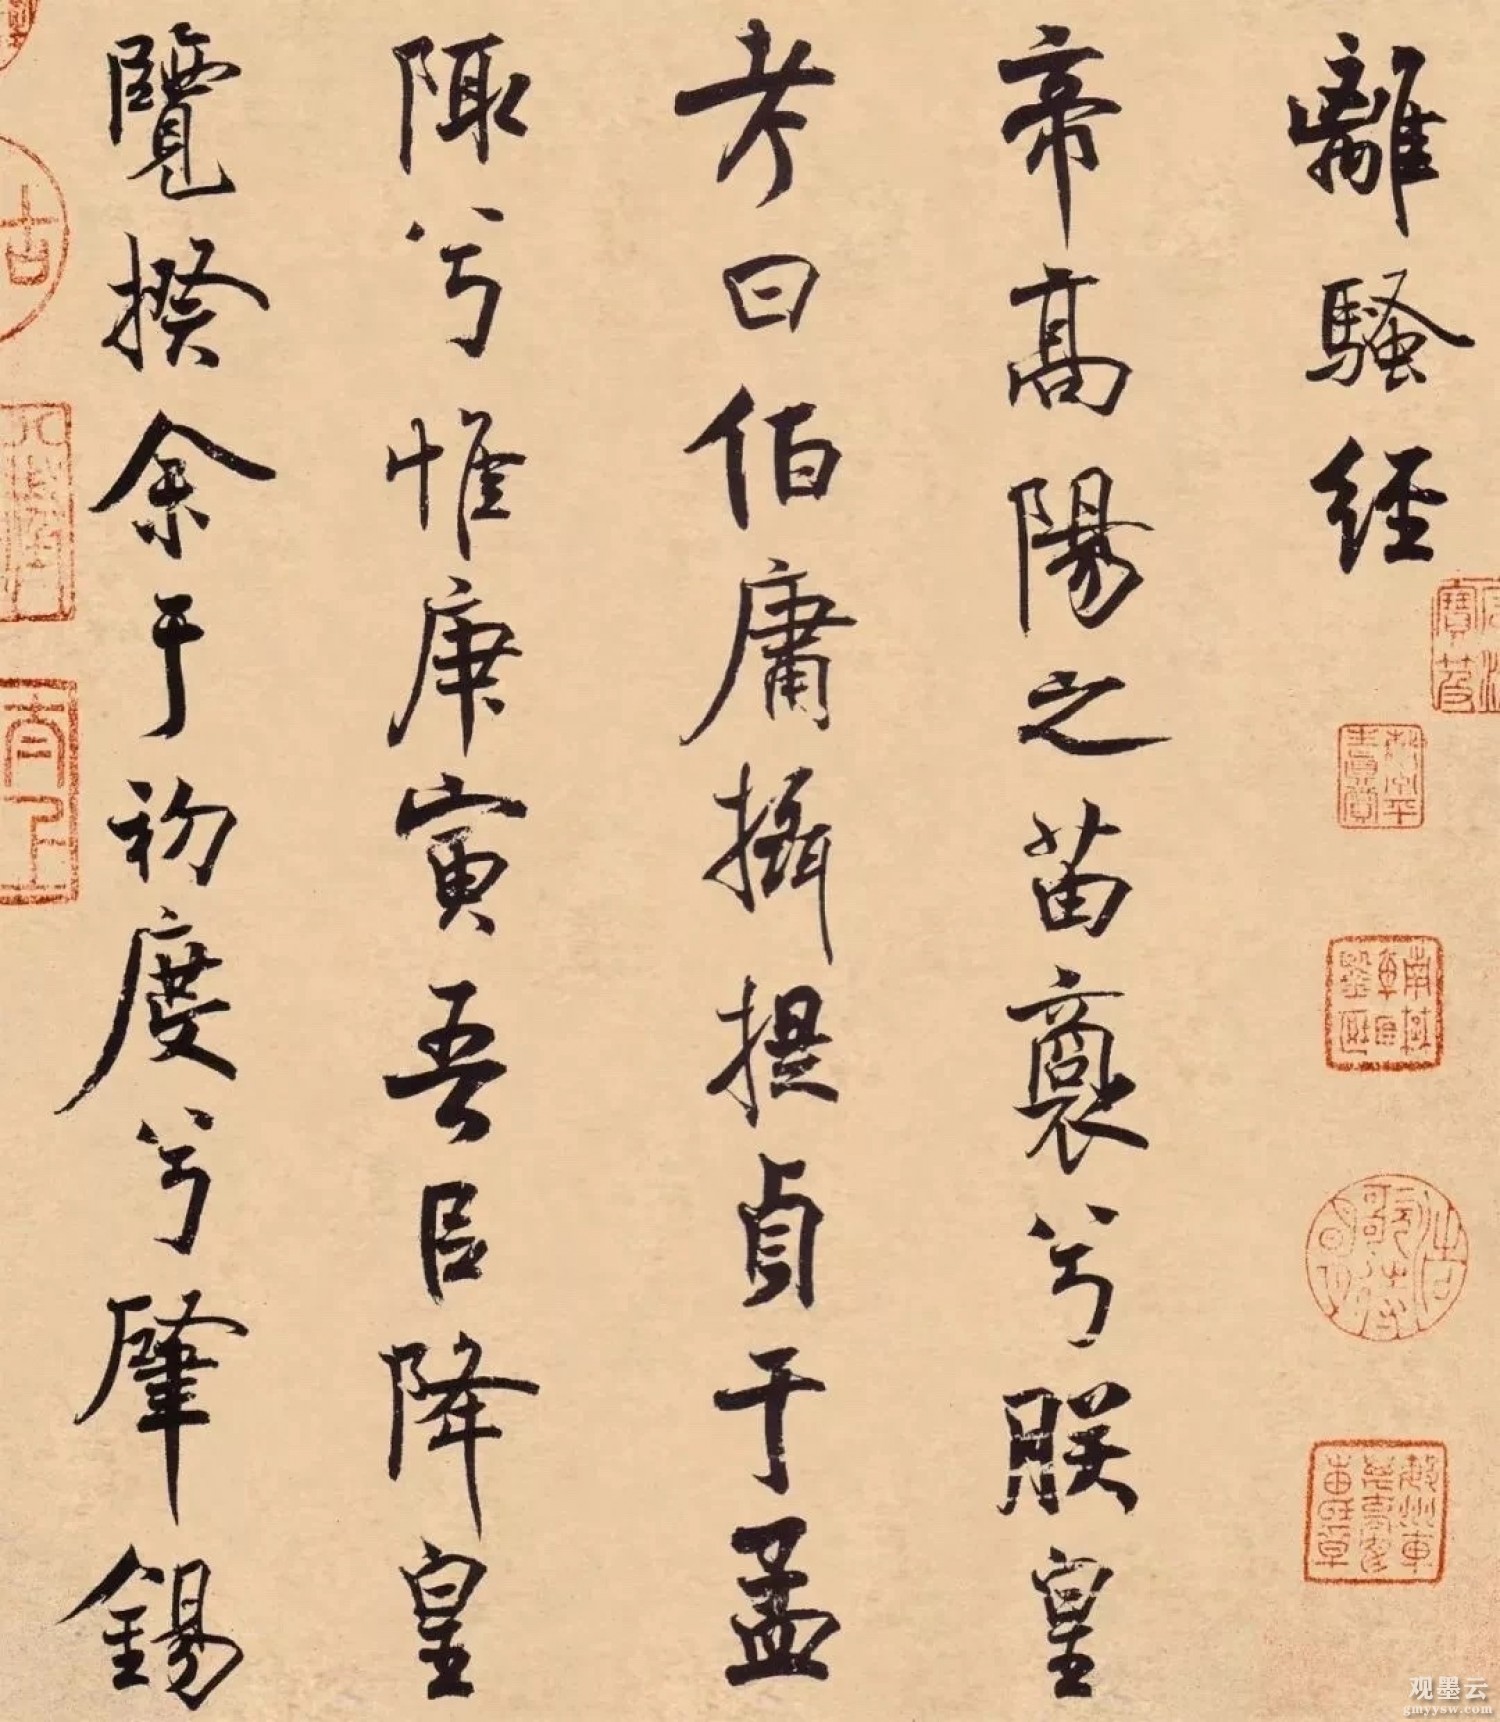 離騷經
帝髙陽之苗裔兮朕皇
考曰伯庸攝提貞于孟
陬兮惟庚寅吾㠯降皇
覽揆余于初度兮肇錫
观墨云
gmyysw.com